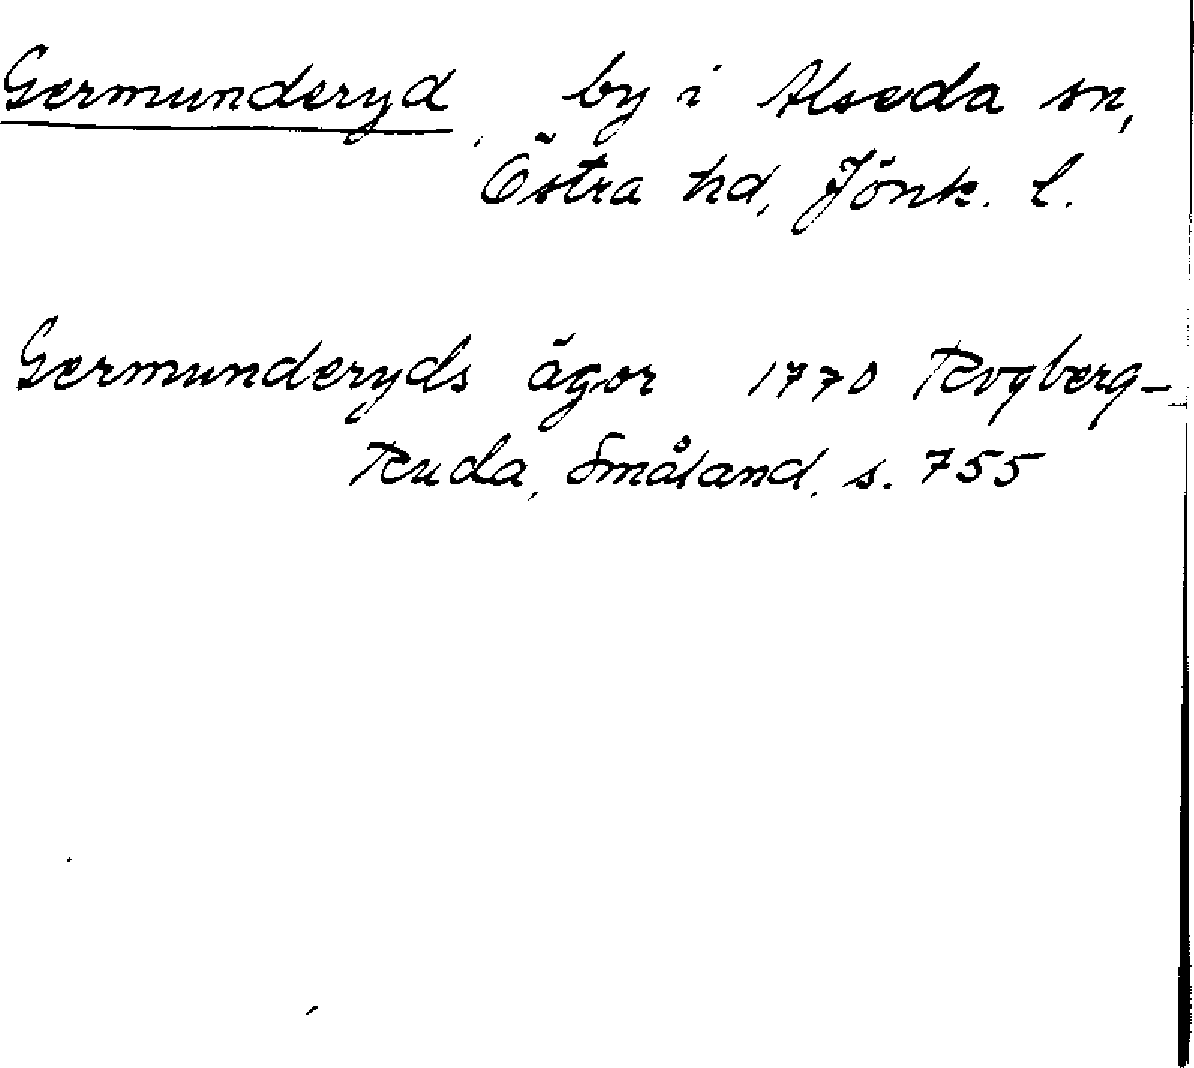 Germunderyd, by i Alseda sn,
Östra hd, Jönk. l.
Germunderyds ägor 1770 Rogberg-
Ruda, Småland, s. 755